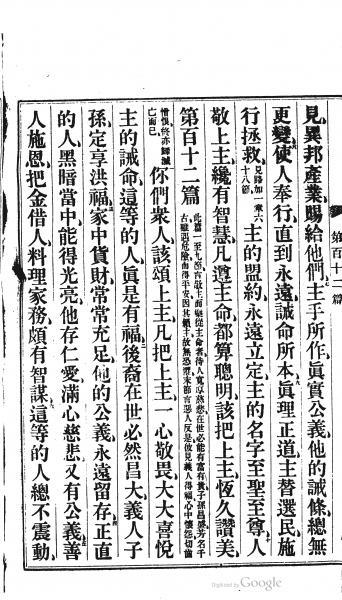 第百十二篇
見異邦產業賜給他們主手所作眞實公義他的誡條總無
更變使人奉行直到永遠誡命所本眞理正道主替選民施
行拯救見路加一章六十八節主的盟約永遠立定主的名字至聖至尊人
敬上主纔有智慧凡遵主命都算聰明該把上主恆久讚美
第百十二篇
憎恨終亦歸滅亡而已你們衆人該頌上主凡把上主一心敬畏大大喜悅
主的誡命這等的人眞是有福後裔在世必然昌大義人子
孫定享洪福家中貨財常常充足他的公義永遠留存正直
的人黑暗當中能得光亮他存仁愛滿心慈悲又有公義善
人施恩把金借人料理家務頗有智謀這等的人總不震動
Digitized by Google